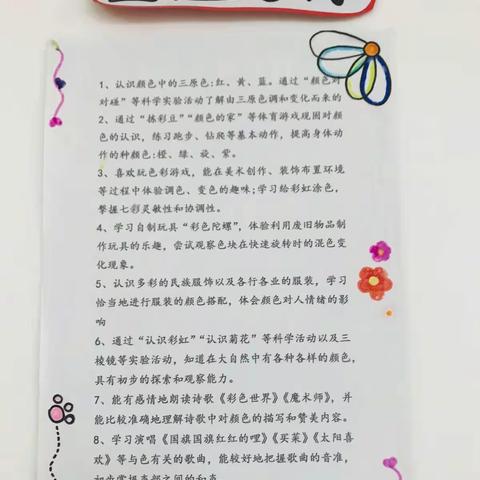 1、认识颜色中的三原色:红、黄、蓝。通过“颜色对
对碰”等科学实验活动了解由三原色调和变化而来的
2、通过“拣彩豆”“颜色的家”等体育游戏观困对颜
色的认识，练习跑步、钻爬等基本动作，提高身体动
作的种颜色:橙、绿、旋、紫。
3、喜欢玩色彩游戏，能在美术创作、装饰布置环境
等过程中体验调色、变色的趣味;学习给彩虹涂色，
掌握七彩灵敏性和协调性。
4、学习自制玩具“彩色陀螺”，体验利用废旧物品制
作玩具的乐趣，尝试观察色块在快速旋转时的混色变
化现象。
5、认识多彩的民族服饰以及各行各业的服装，学习
恰当地进行服装的颜色搭配，体会颜色对人情绪的影
响
6、通过“认识彩虹”“认识菊花”等科学活动以及三
棱镜等实验活动，知道在大自然中有各种各样的颜色，
具有初步的探索和观察能力。
7、能有感情地朗读诗歌《彩色世界》《魔术师》，并
能比较准确地理解诗歌中对颜色的描写和赞美内容。
8、学习演唱《国旗国旗红红的哩》《买菜》《太阳喜
欢》等与色有关的歌曲，能较好地把握歌曲的音准，